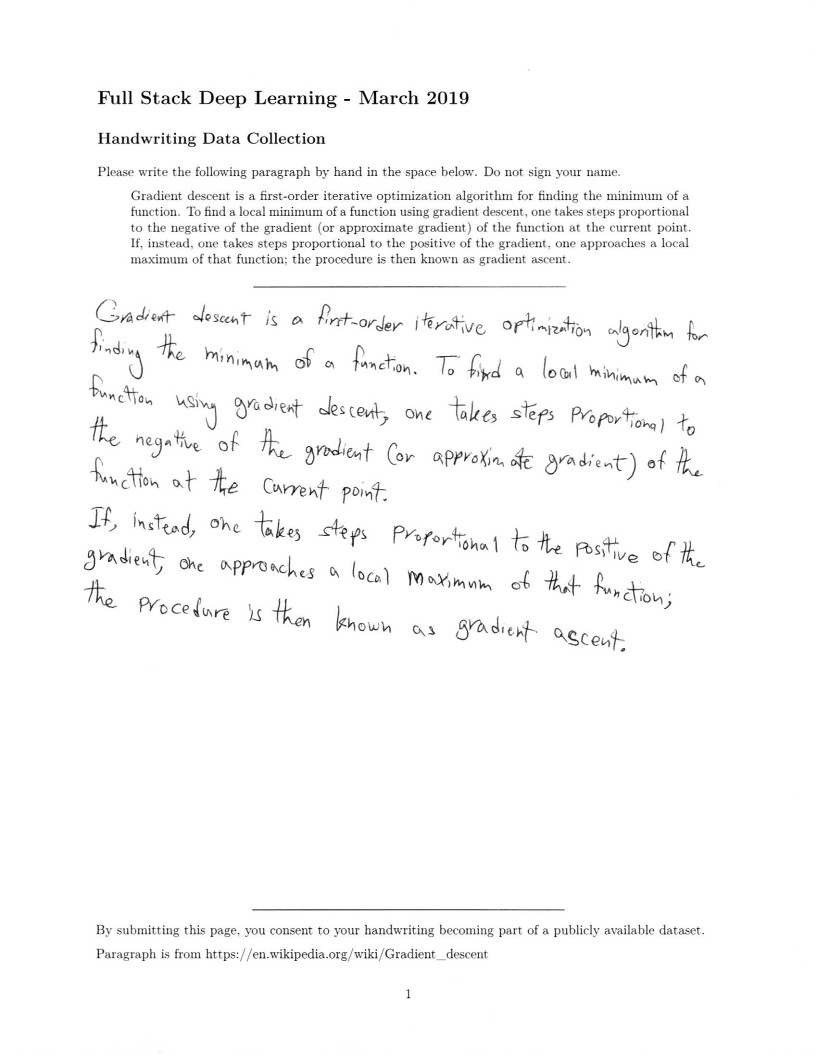 Full Stack Deep Learning - March 2019
Handwriting Data Collection
Please write the following paragraph by hand in the space below. Do not sign your name.
Gradient descent is a first-order iterative optimization algorithm for finding the minimum of a
function. To find a local minimum of a function using gradient descent, one takes steps proportional
to the negative of the gradient (or approximate gradient) of the function at the current point.
If, instead, one takes steps proportional to the positive of the gradient, one approaches a local
maximum of that function; the procedure is then known as gradient ascent.
Gradient descent is a first-order iterative optimization algorithm for
finding the minimum of a function. To find a local minimum of a
function using gradient descent, one takes steps proportional to
the negative of the gradient (or approximate gradient) of the
function at the current point.
If, instead, one takes steps proportional to the positive of the
gradient, one approaches a local maximum of that function;
the procedure is then known as gradient ascent.
By submitting this page, you consent to your handwriting becoming part of a publicly available dataset.
Paragraph is from https://en.wikipedia.org/wiki/Gradient_descent
1